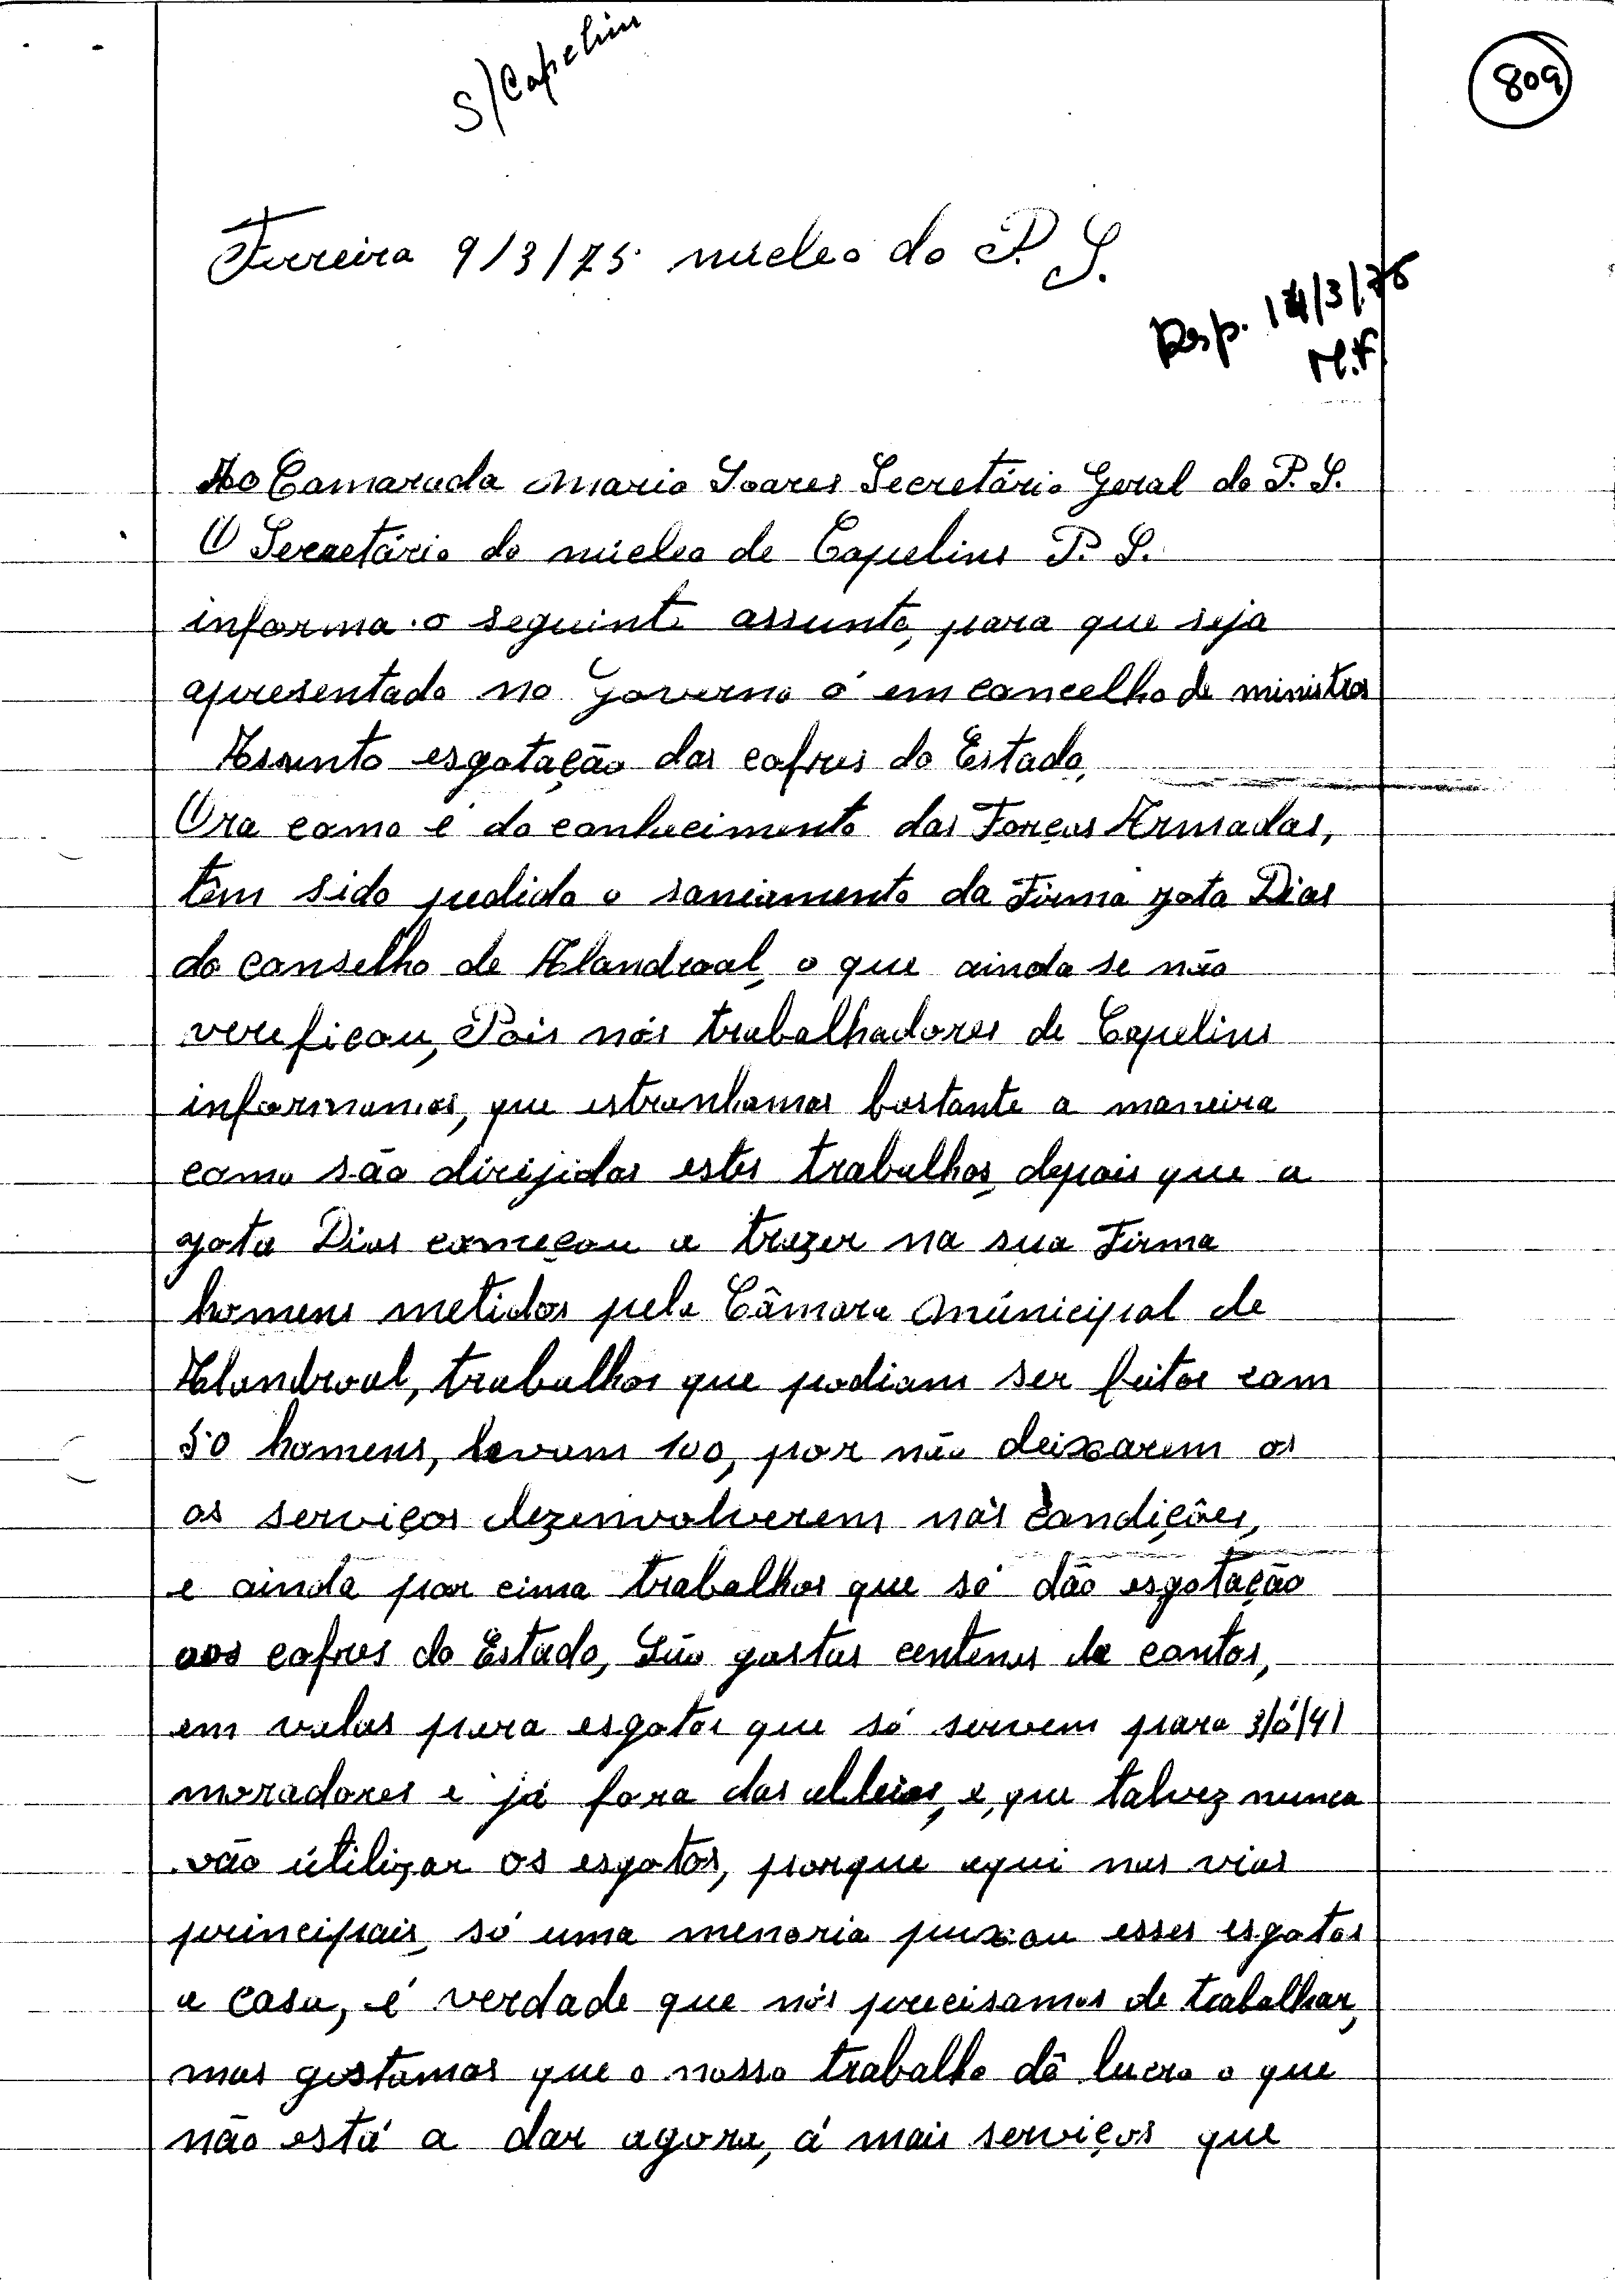 S/Capelins
809
Ferreira 9/3/75. núcleo do P. S.
Resp. 14/3/75
M.F
Ao Camarada Mario Soares Secretário Geral do P. S.
O Secretário do núcleo de Capelins P. S.
informa o seguinte assunto, para que seja
apresentado no Governo ó em concelho de ministros
Assunto esgotação dos cofres do Estado,
Ora como é do conhecimento das Forças Armadas,
têm sido pedido o saniamento da Firma gata Dias
do conselho de Alandroal, o que ainda se não
verificou, Pois nós trabalhadores de Capelins
informamos, que estranhamos bastante a maneira
como são dirijidos estes trabalhos, depois que a
gata Dias começou a trazer na sua Firma
homens metidos pela Câmara Múnicipal de
Alandroal, trabalhos que podiam ser feitos com
50 homens, levam 100, por não deixarem os
os serviços dezenvolverem nás condições,
e ainda por cima trabalhos que só dão esgotação
aos cofres do Estado, São gastas centenas de contos,
em valas para esgotos que só servem para 3/ó/4/
moradores e já fora das aldeias, e, que talvez nunca
vão útilizar os esgotos, porque aqui nas vias
principais, só uma menoria puxou esses esgotos
a casa, é verdade que nós precisamos de trabalhar,
mas gostamos que o nosso trabalho dê lucro o que
não está a dar agora, á mais serviços que